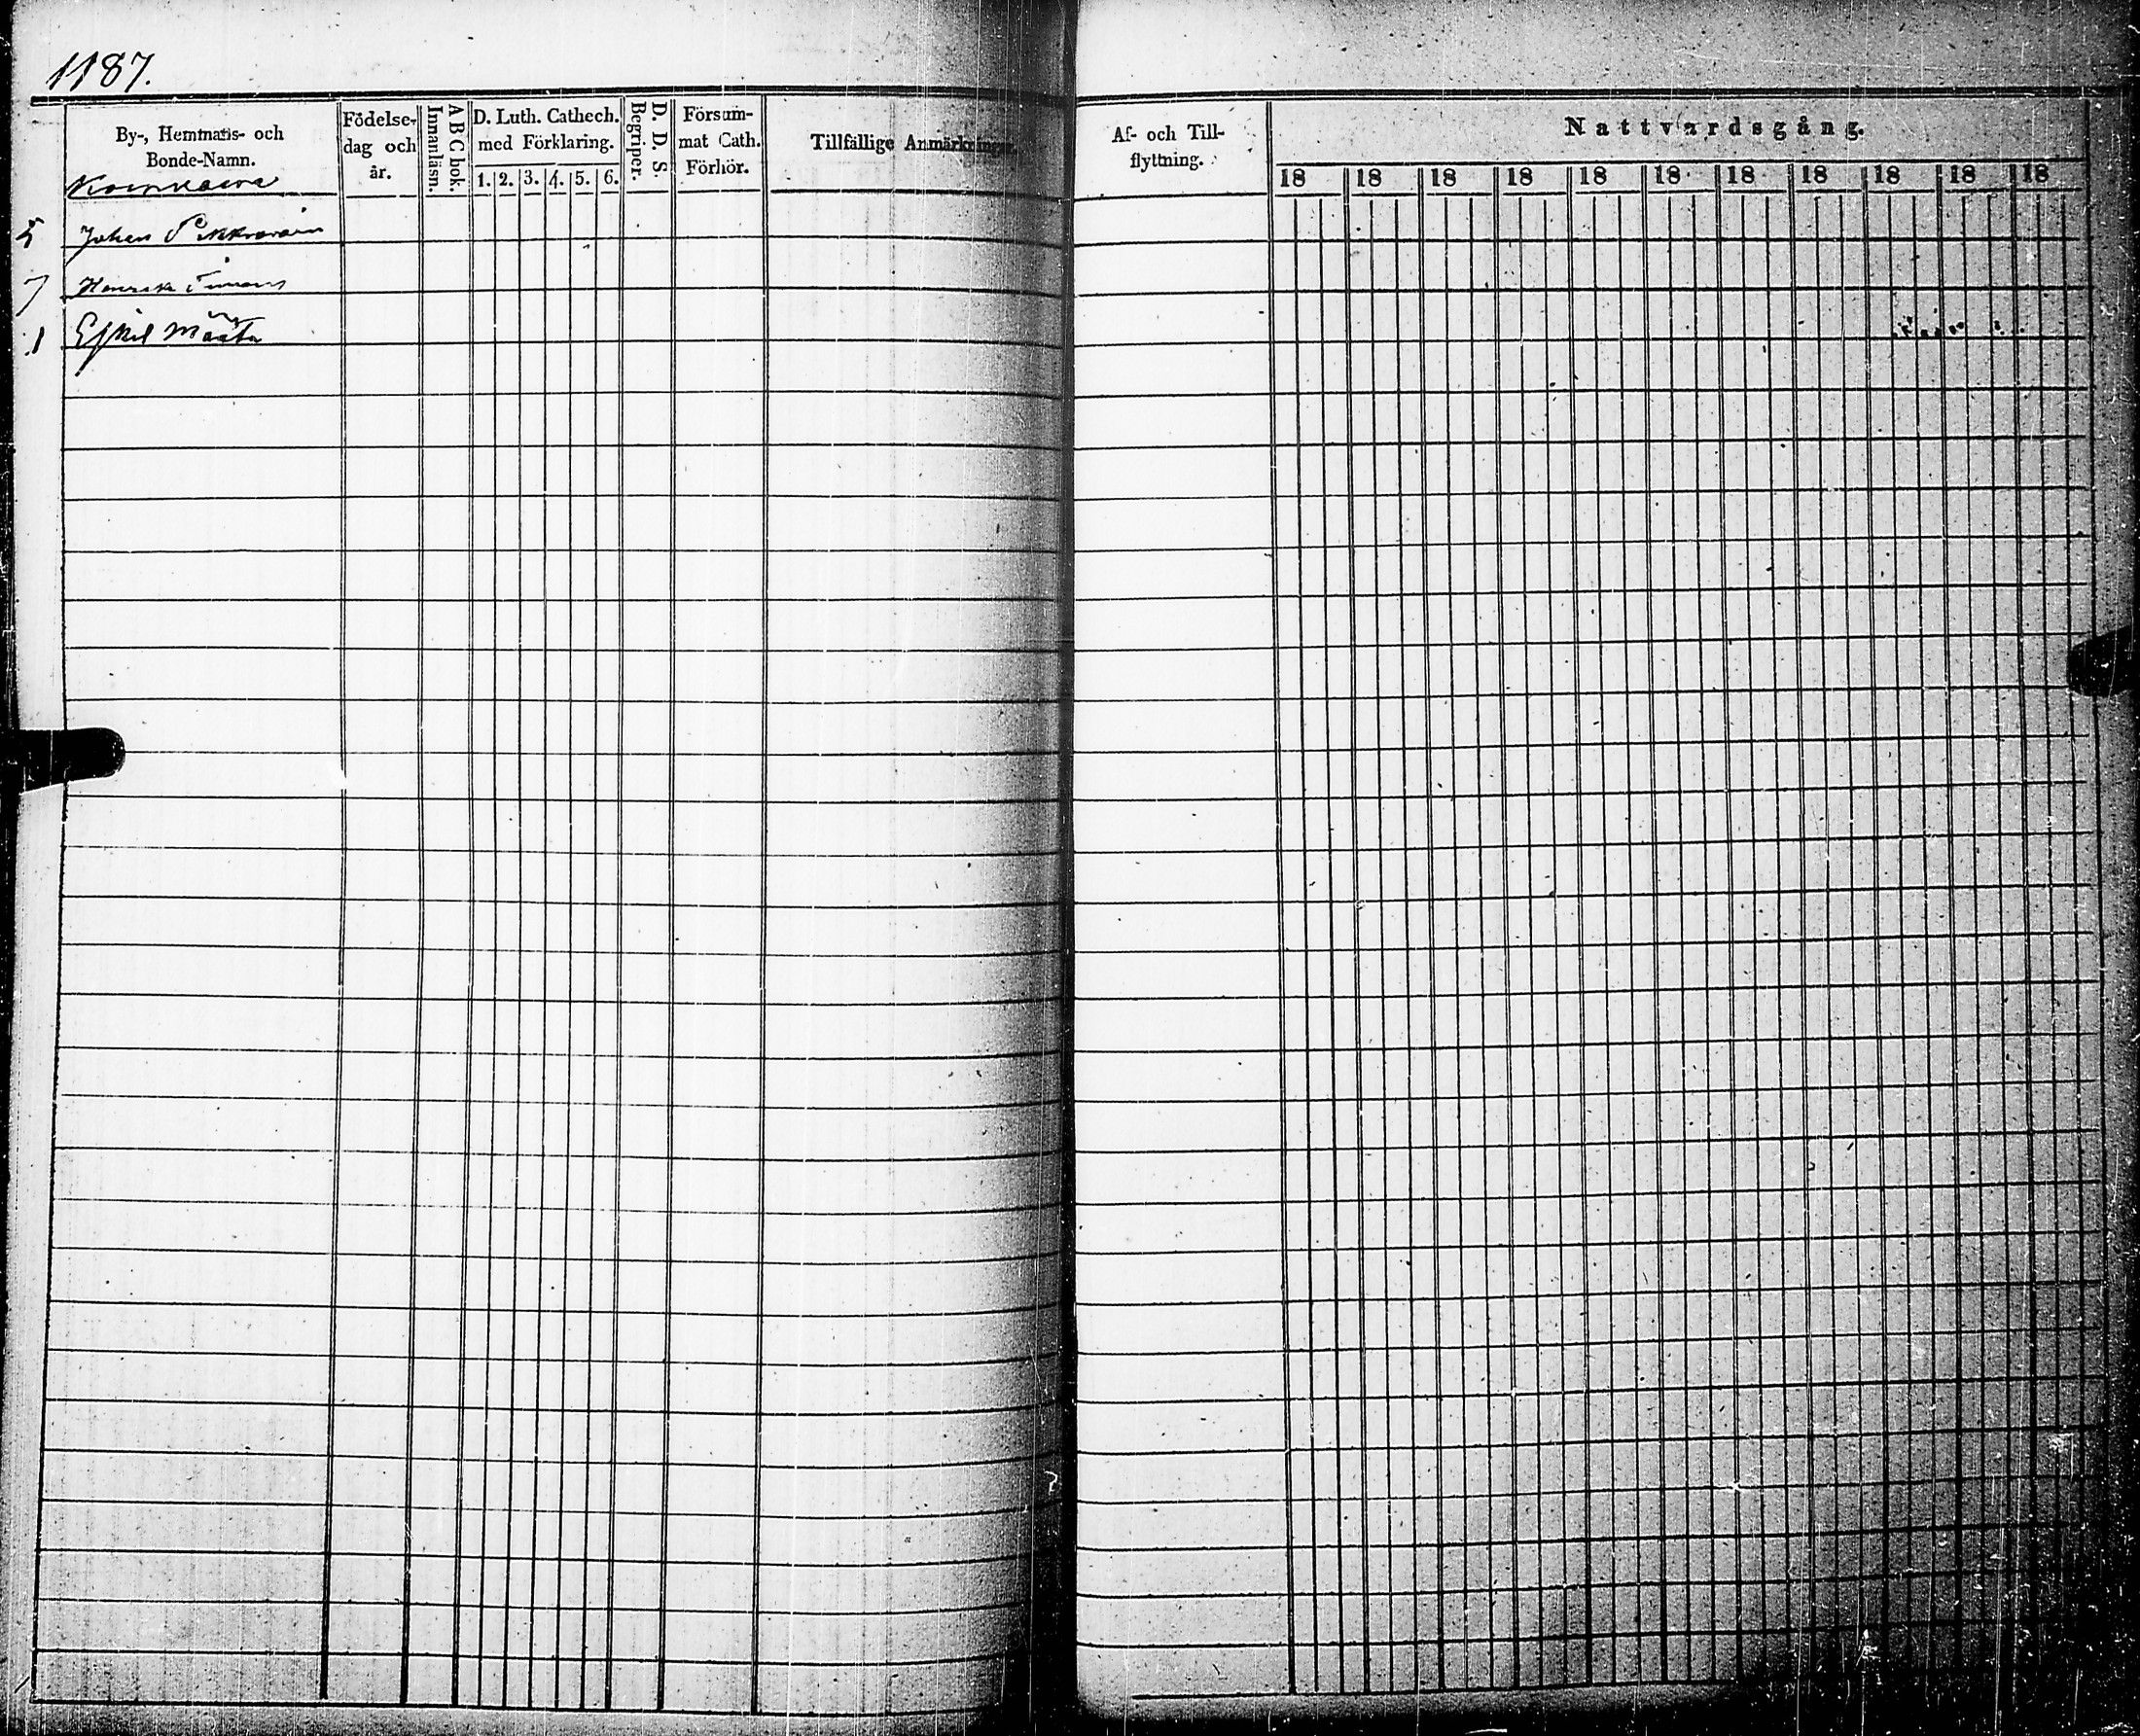 1187.
By-, Hemmans- och
Bonde-Namn.
Födelse-
dag och
år.
A B C bok.
Innanläsn.
D. Luth. Cathech.
med Förklaring.
1. 2. 3. 4. 5. 6.
D. D. S
Begriper.
Försum-
mat Cath.
Förhör.
Tillfällige Anmärkningar.
Af- och Till-
flyttning.
Nattvardsgång.
18 18 18 18 18 18 18 18 18 18 18
Johan
7 Henrik
1 Eskel Määtta